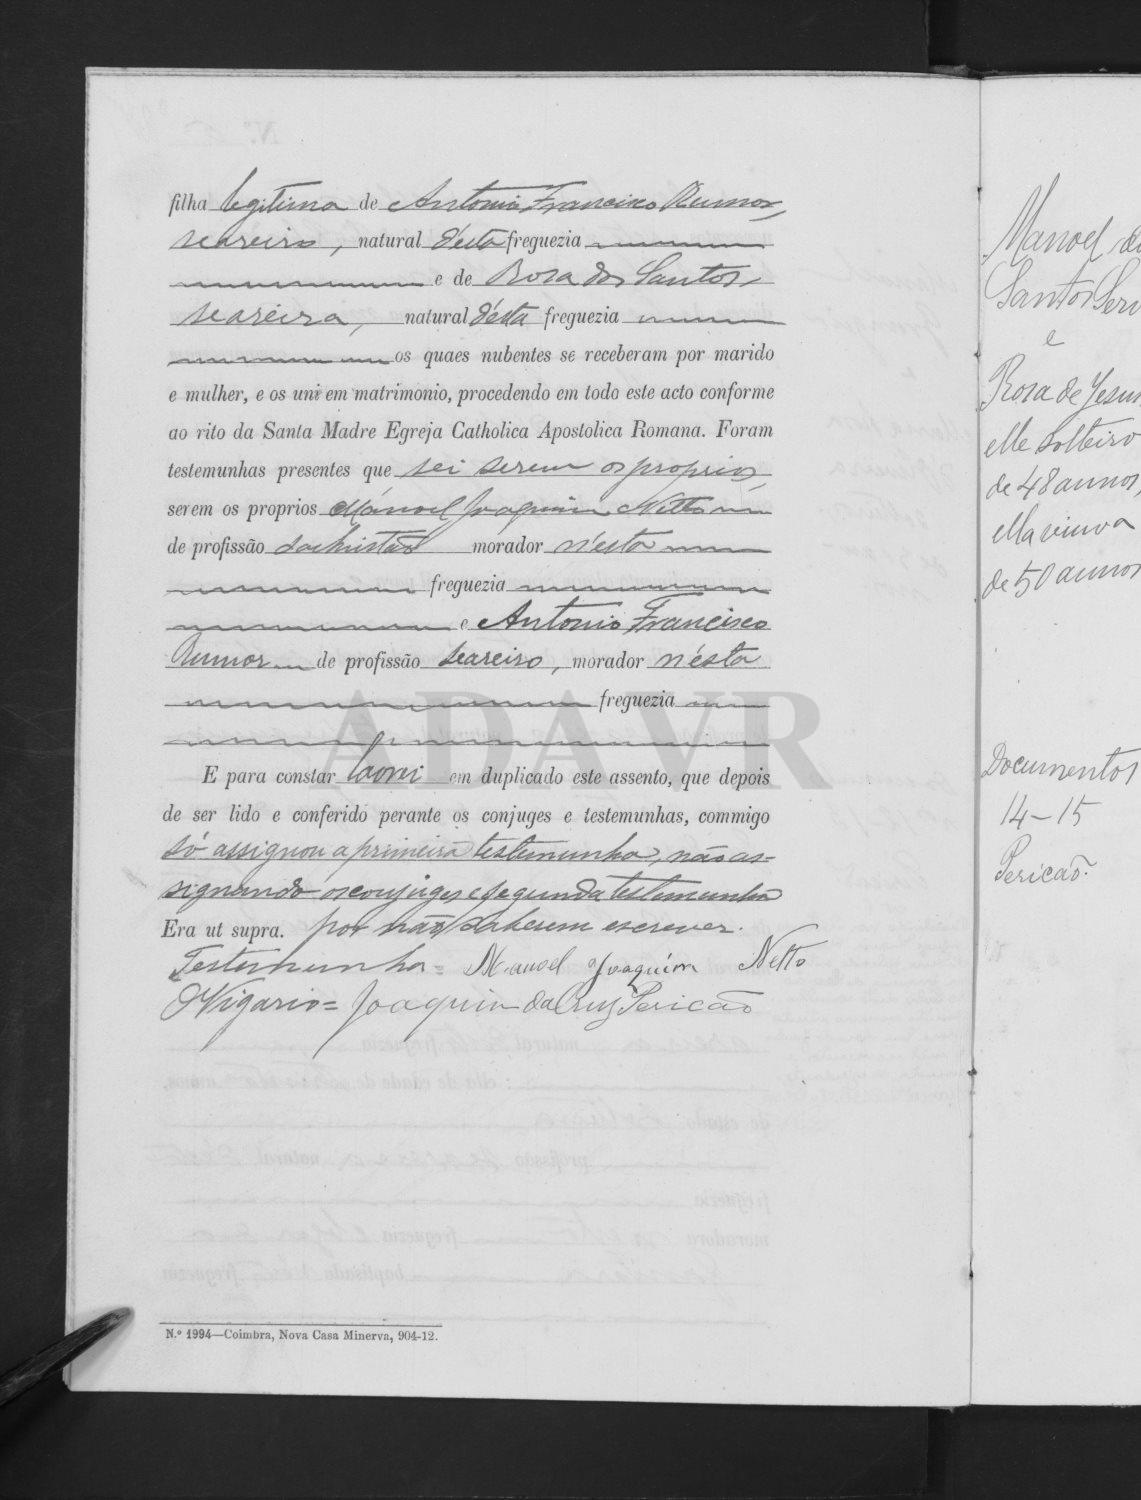 filha legitima de Antonio Francisco Rumor,
seareiro, natural d'ésta freguezia
e de Rosa dos Santos,
seareira, natural d'ésta freguezia
os quaes nubentes se receberam por marido
e mulher, e os uni em matrimonio, procedendo em todo este acto conforme
ao rito da Santa Madre Egreja Catholica Apostolica Romana. Foram
testemunhas presentes que sei serem os proprios,
serem os proprios Manoel Joaquim Netto
de profissão sachristão morador n'ésta
freguezia
e Antonio Francisco
Rumor de profissão seareiro, morador n'ésta
freguezia
E para constar lavrei em duplicado este assento, que depois
de ser lido e conferido perante os conjuges e testemunhas, commigo
só assignou a primeira testemunha, não as-
signando os conjuges e segunda testemunha
Era ut supra. por não saberem escrever.
Testemunha = Manoel Joaquim Netto
O Vigario = Joaquim da Cruz Pericão
N.º 1994—Coimbra, Nova Casa Minerva, 904-12.
ADAVR
Manoel do
Santos Ser
e
Rosa de Jesus
elle solteiro
de 48 annos,
ella viuva
de 50 annos
Documentos
14-15
Pericão.